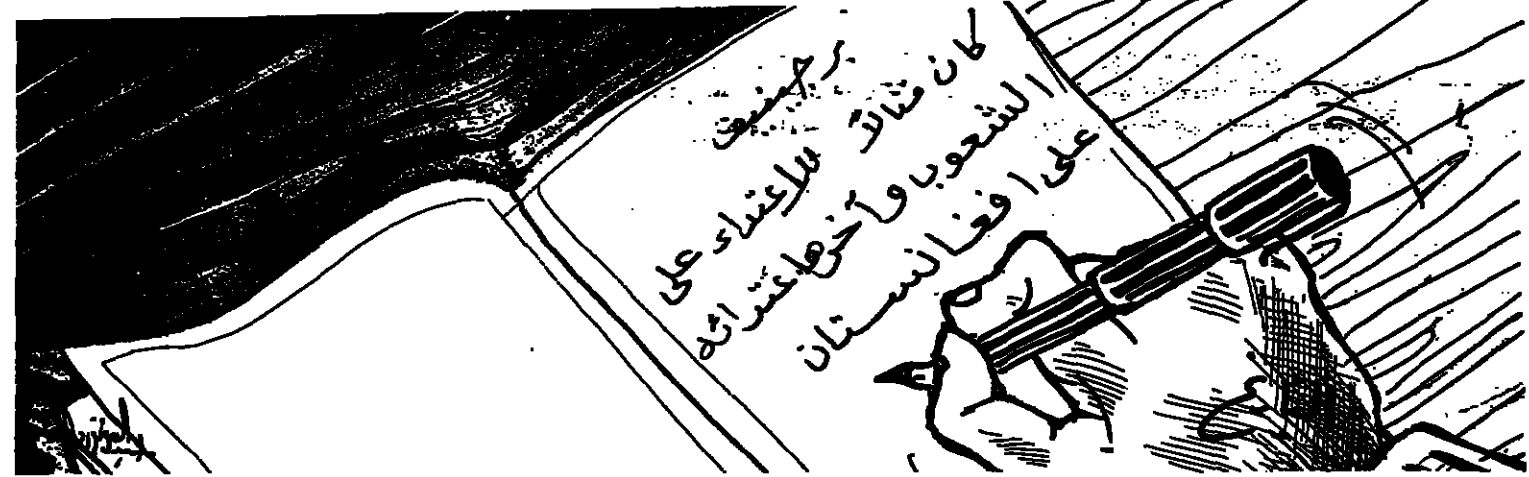 برجنيف
كان مثالاً للاعتداء على
الشعوب وآخرها عتدائه
على افغانستان